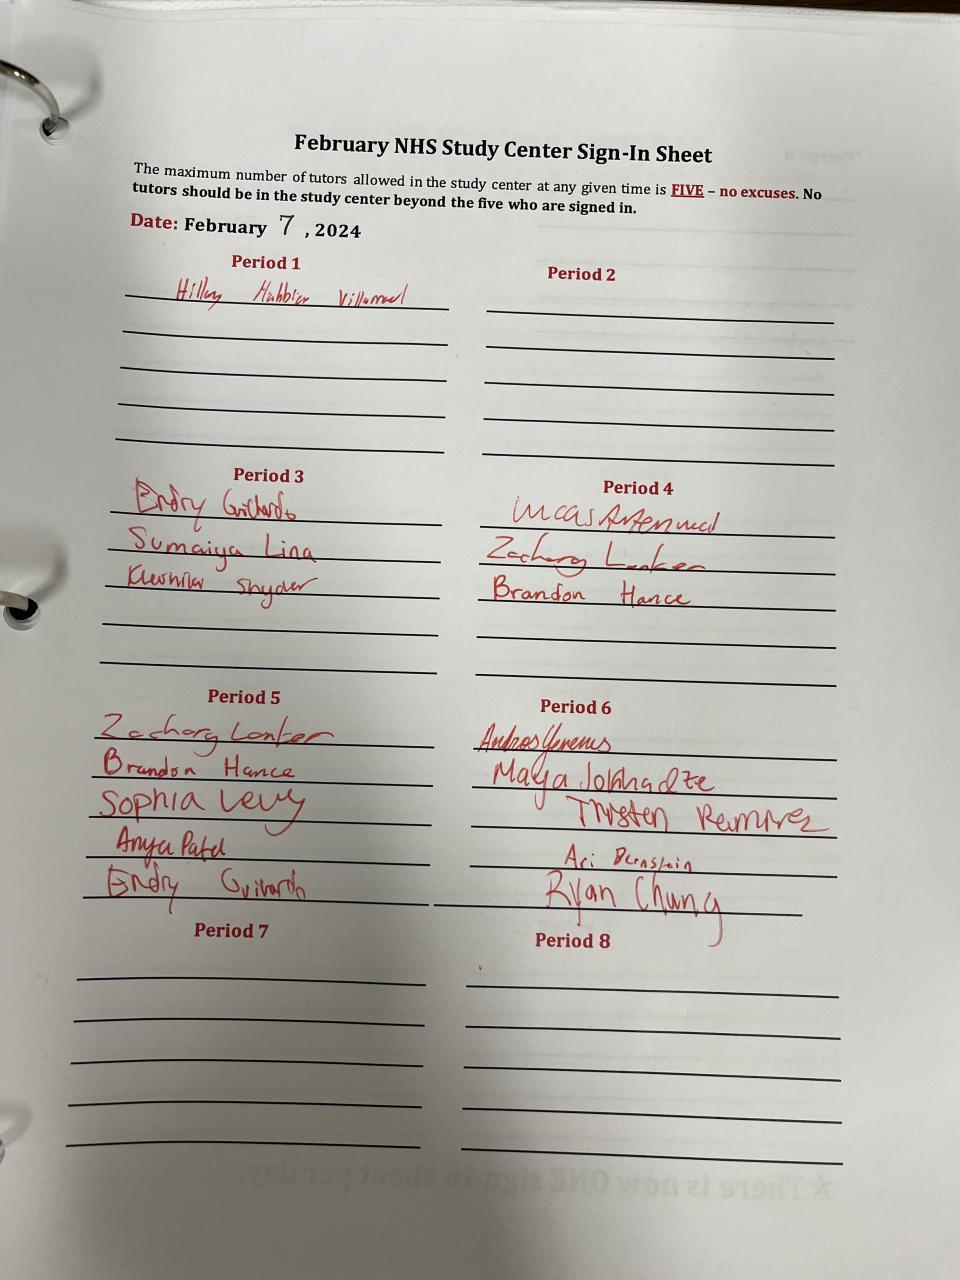 February NHS Study Center Sign-In Sheet
The maximum number of tutors allowed in the study center at any given time is FIVE – no excuses. No
tutors should be in the study center beyond the five who are signed in.
Date: February 7, 2024
Period 1
Period 2
Period 3
Endry
Sumaiya Lina
Snyder
Period 4
Lucas
Zachary Lanker
Brandon Hance
Period 5
Zachary Lanker
Brandon Hance
Sophia Levy
Anya Patel
Endry
Period 6
Maya Jokhadze
Ramirez
Ari Bernstein
Ryan Chung
Period 7
Period 8
There is now ONE sign-in sheet per day.